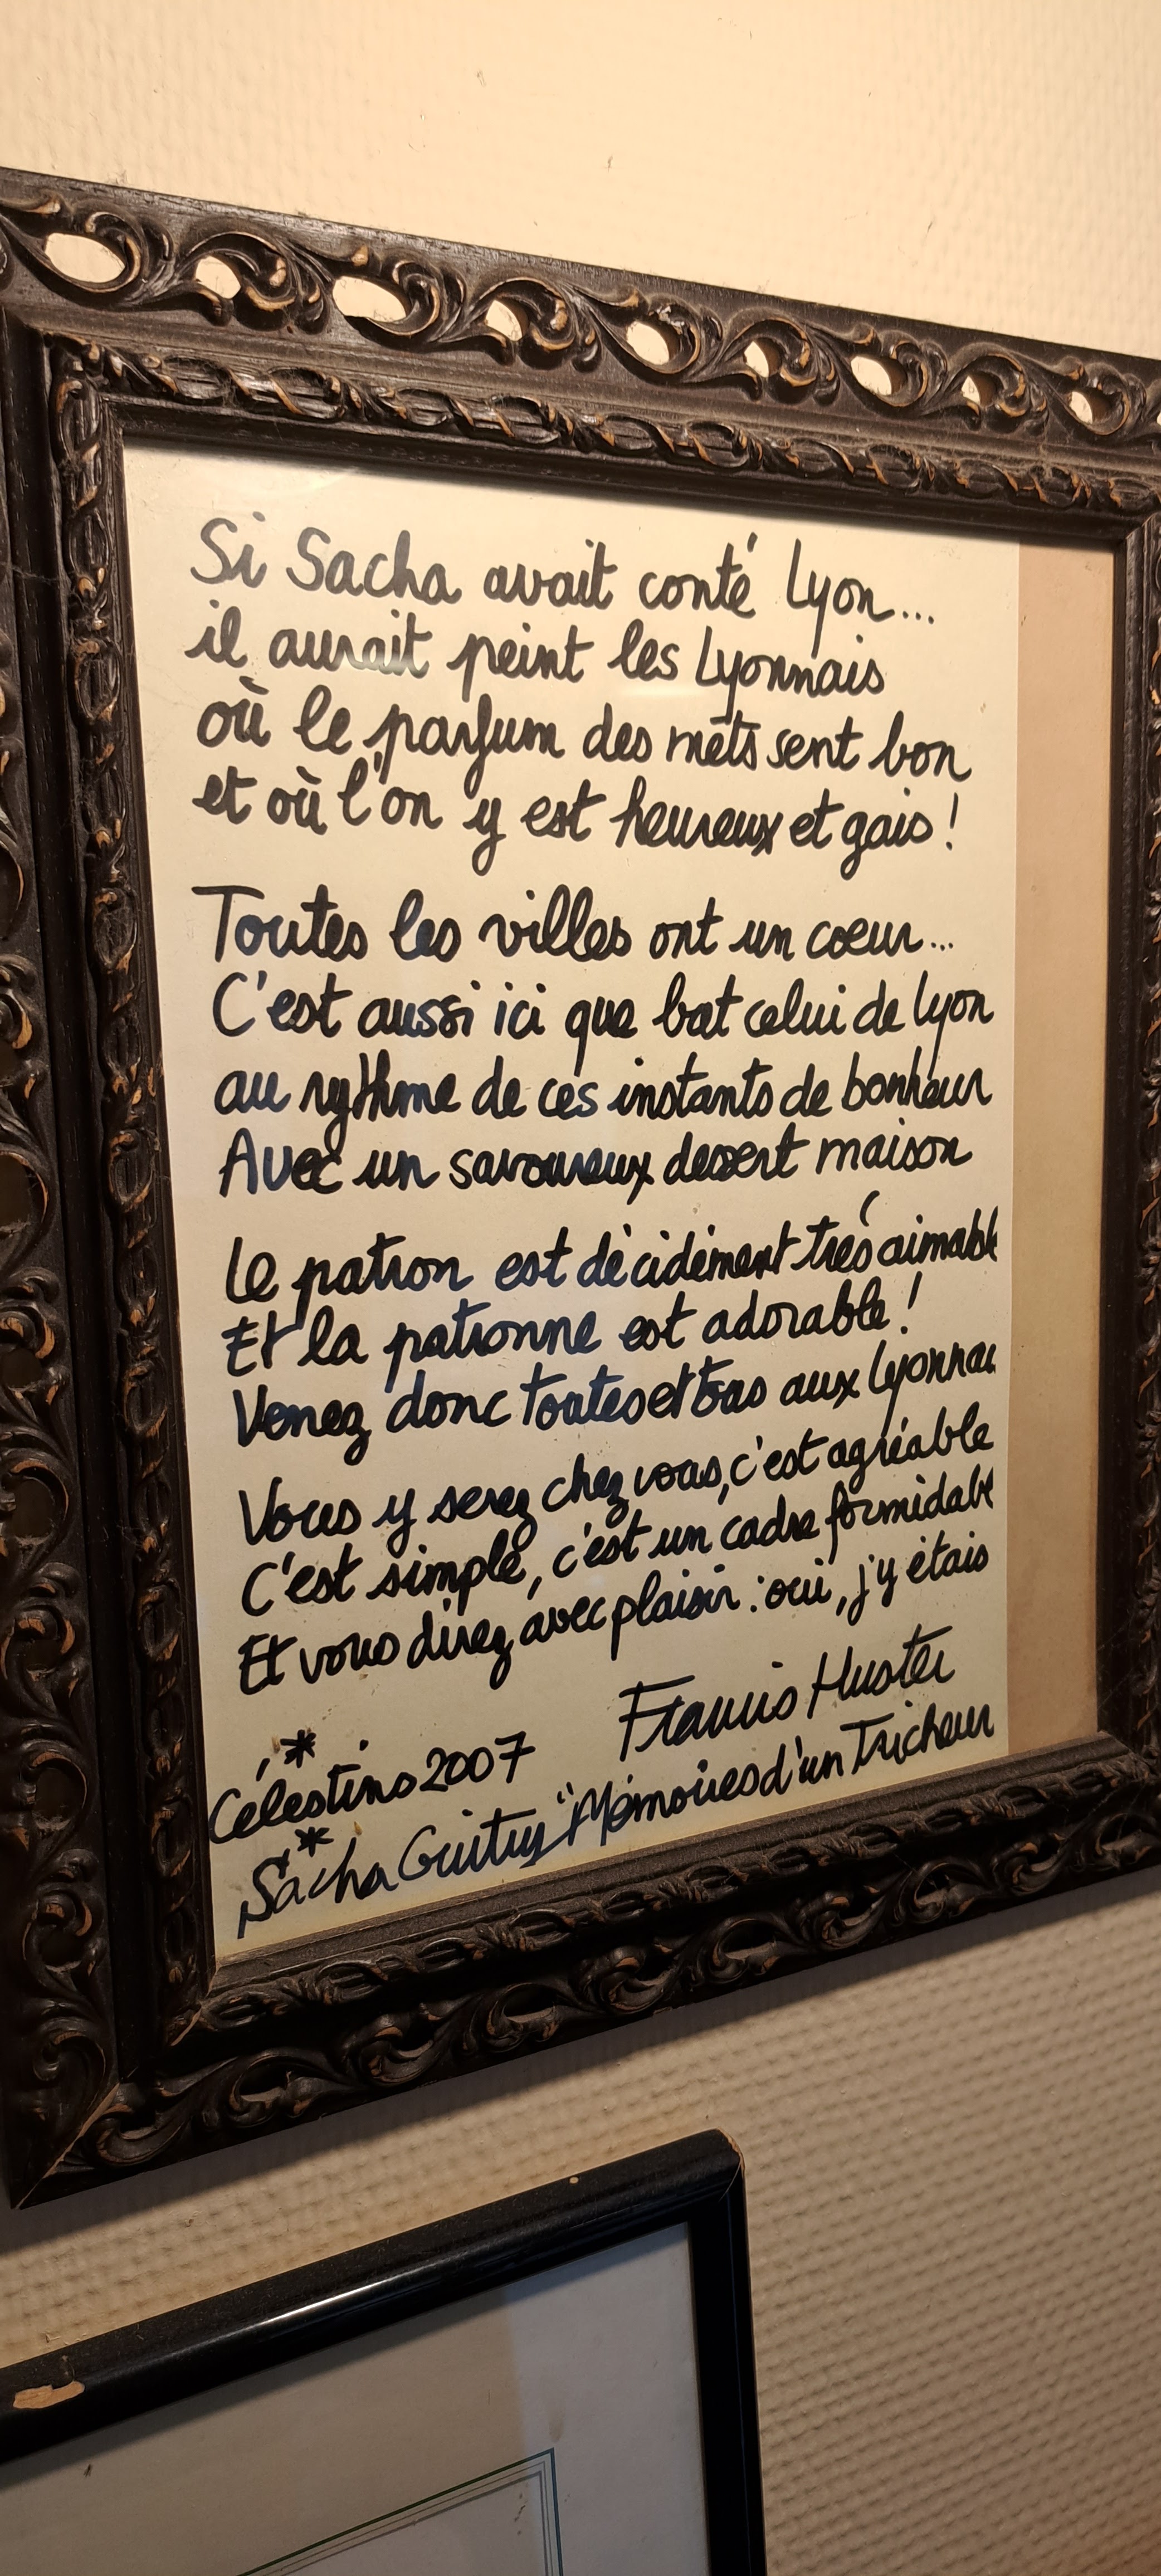 Si Sacha avait conté Lyon...
il aurait peint les Lyonnais
où le parfum des mets sent bon
et où l'on y est heureux et gais !
Toutes les villes ont un cœur...
C'est aussi ici que bat celui de Lyon
au rythme de ces instants de bonheur
Avec un savoureux dessert maison
Le patron est décidément très aimabl
Et la patronne est adorable !
Venez donc toutes et tous aux Lyonnai
Vous y serez chez vous, c'est agréable
C'est simple, c'est un cadre formidabl
Et vous direz avec plaisir : oui, j'y étais
Francis Huster
* Célestins 2007
* Sacha Guitry "Mémoires d'un Tricheur